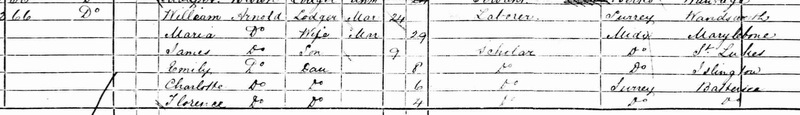 366 Do William Arnold Lodger Mar 24 Laborer Surrey Wandsworth
Maria Do Wife Mar 29 Midx Marylebone
James Do Son 9 Scholar Do St Lukes
Emily Do Dau 8 Do Do Islington
Charlotte Do Do 6 Do Surrey Battersea
Florence Do Do 4 Do Do Do